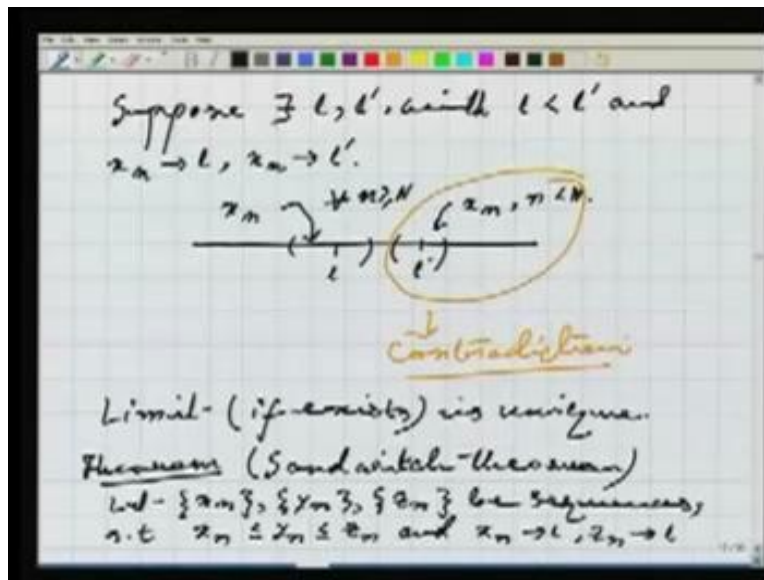 Suppose ∃ l, l', with l < l' and
x_n → l, x_n → l'.
x_n ∀ n ≥ N x_n, n < N.
( l ) ( l' )
Contradiction
Limit - (if exists) is unique.
Theorem (Sandwitch-theorem)
Let - {x_n}, {y_n}, {z_n} be sequences,
s.t x_n ≤ y_n ≤ z_n and x_n → l, z_n → l